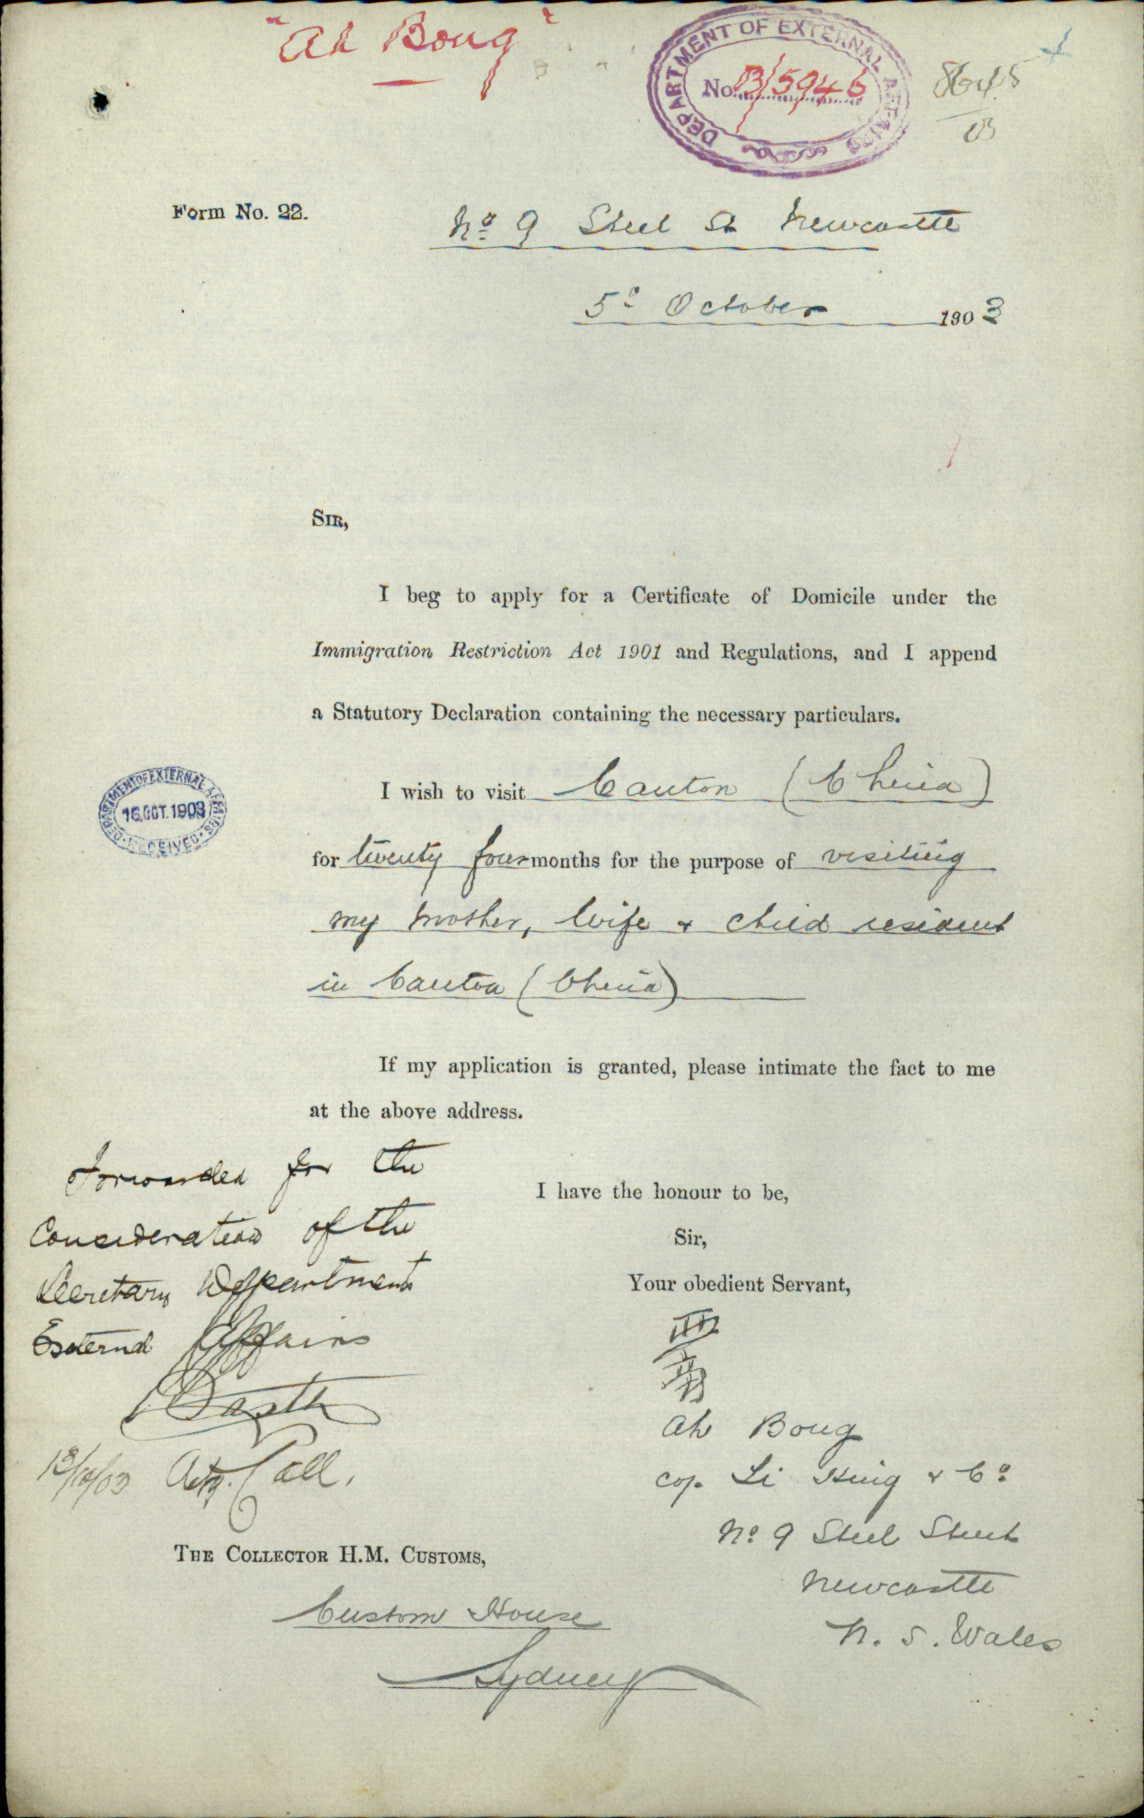 "Ah Boug"
DEPARTMENT OF EXTERNAL AFFAIRS
No. 03/5946
Form No. 22.
No 9 Steel St Newcastle
5e October 1903
SIR,
I beg to apply for a Certificate of Domicile under the
Immigration Restriction Act 1901 and Regulations, and I append
a Statutory Declaration containing the necessary particulars.
I wish to visit Canton (China)
DEPARTMENT OF EXTERNAL AFFAIRS
16.OCT.1903
RECEIVED
for twenty four months for the purpose of visiting
my Mother, Wife & Child resident
in Canton (China)
If my application is granted, please intimate the fact to me
at the above address.
Forwarded for the
Consideration of the
Secretary Department
External Affairs
13/10/03 Actg. Coll.
I have the honour to be,
Sir,
Your obedient Servant,
Ah Boug
c/o Li Hing & Co
No 9 Steel Street
Newcastle
N. S. Wales
THE COLLECTOR H.M. CUSTOMS,
Custom House
Sydney